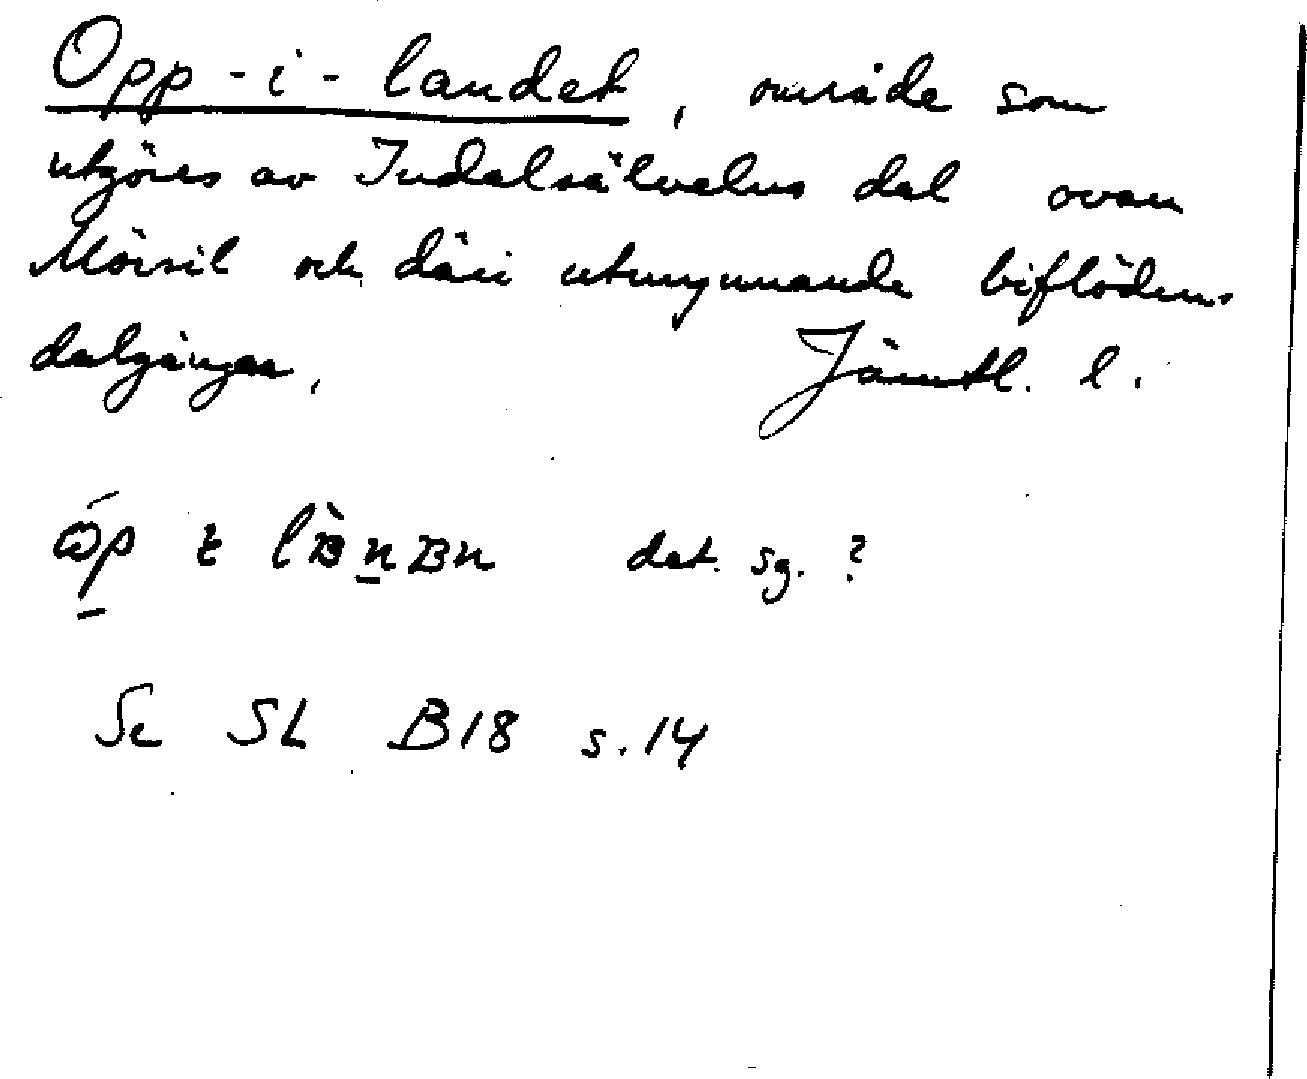 Opp-i-landet, område som
utgöres av Indalsälvens dal ovan
Mörsil och däri utmynnande biflödens
dalgångar. Jämtl. l.
dat. sg. ?
Se SL B18 s. 14